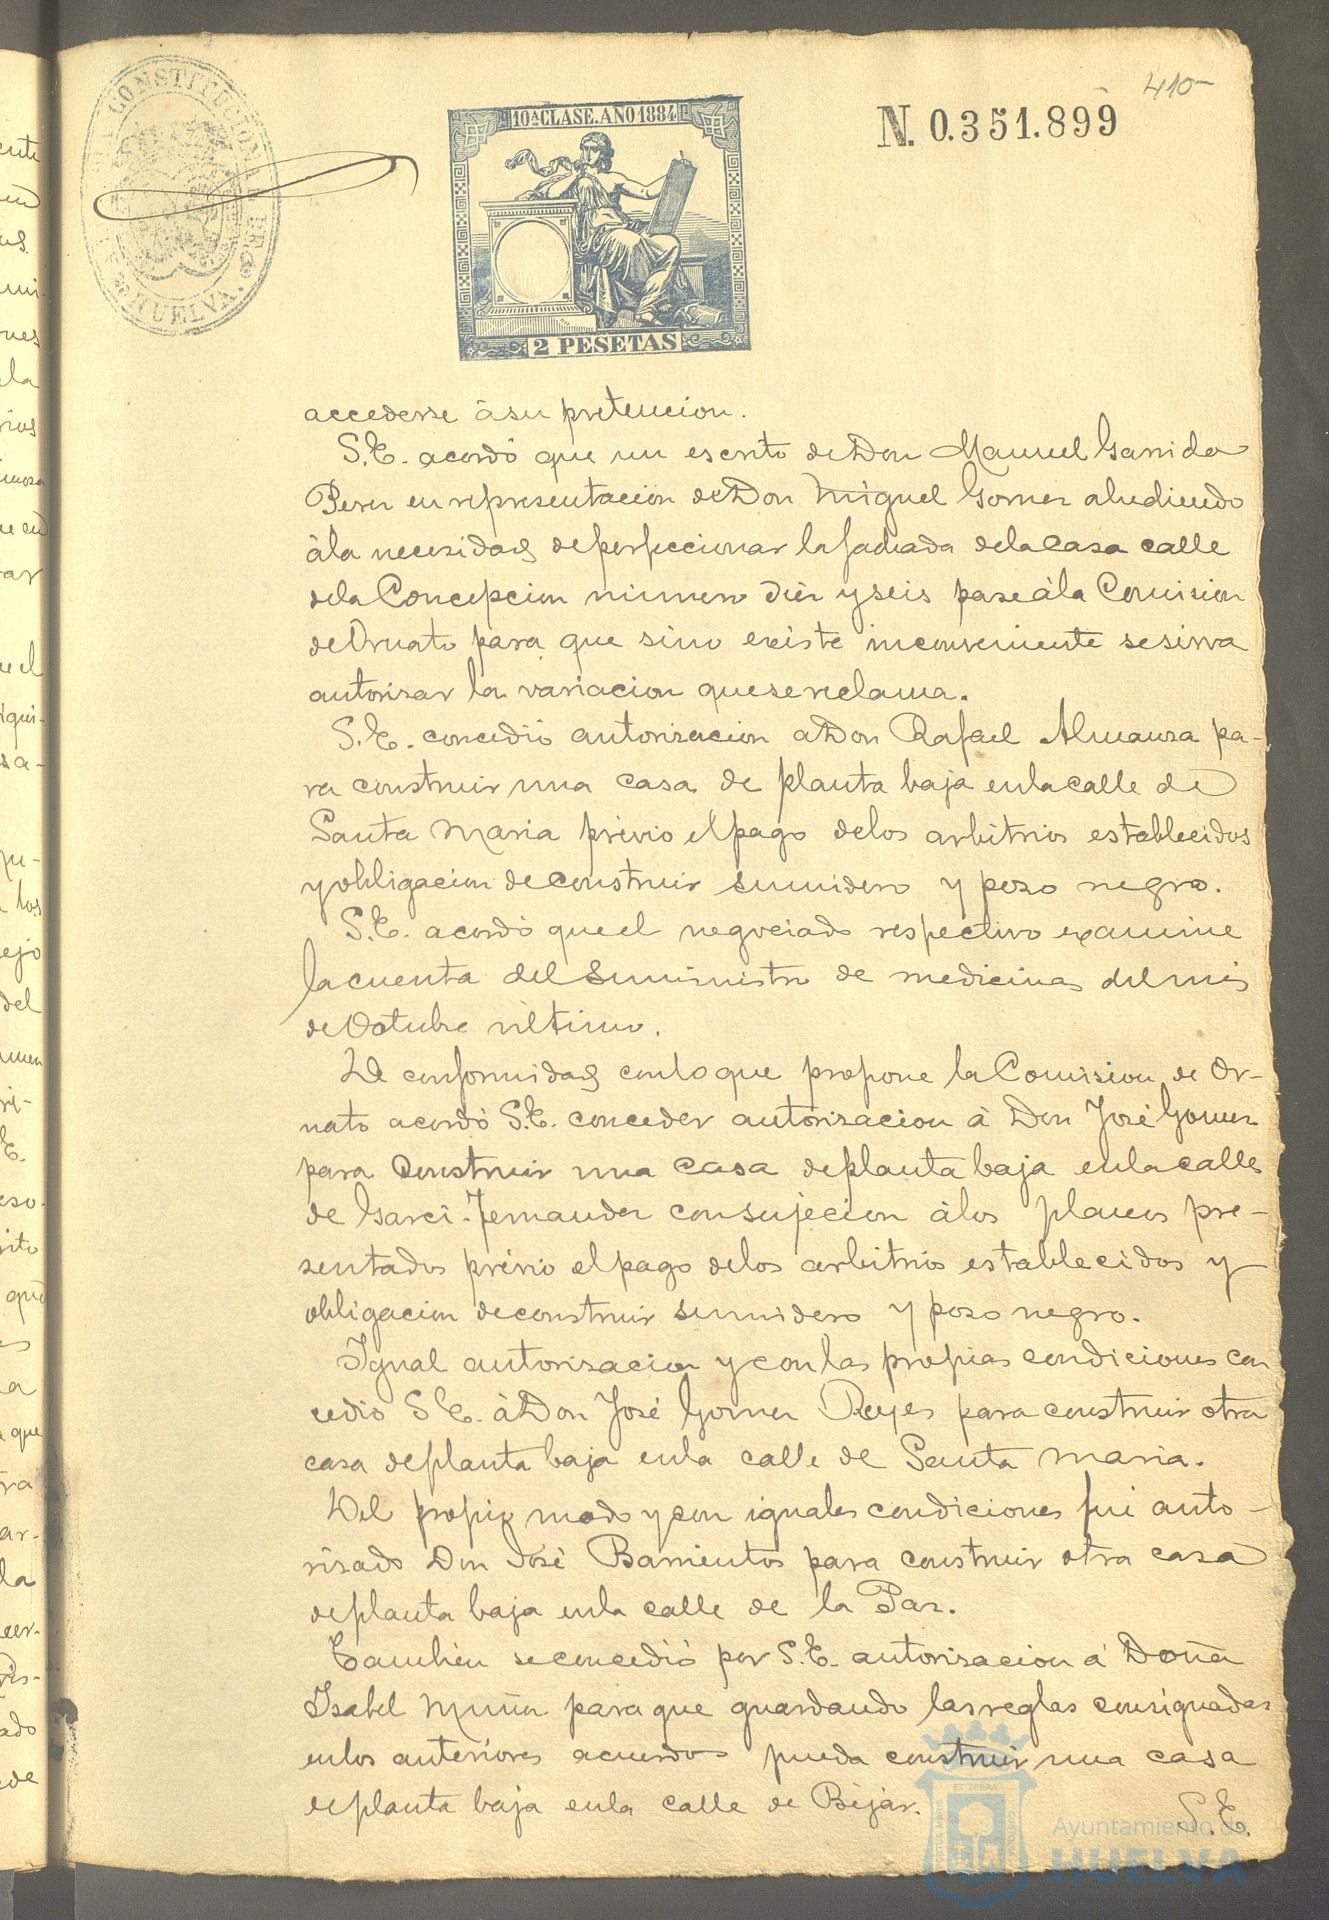 410
N. 0.351.899
CONSTITUCIONAL DE
HUELVA.
10ª CLASE. AÑO 1884
2 PESETAS
accederse à su pretencion.
S.E. acordó que un escrito de Don Manuel Garrido
Perez en representacion de Don Miguel Gomez aludiendo
à la necesidad de perfeccionar la fachada de la Casa calle
de la Concepcion número diez y seis pase à la Comision
de Ornato para que sino existe inconveniente se sirva
autorizar la variacion que se reclama.
S.E. concedió autorizacion a Don Rafael Almanza pa-
ra construir una casa de planta baja en la calle de
Santa Maria prévio el pago de los arbitrios establecidos
y obligacion de construir sumidero y pozo negro.
S.E. acordó que el negociado respectivo examine
la cuenta del Suministro de medicinas del mes
de Octubre último.
De conformidad con lo que propone la Comision de Or-
nato acordó S.E. conceder autorizacion à Don José Gomez
para Construir una casa de planta baja en la calle
de Garci-Fernandez con sujecion à los planos pre-
sentados prévio el pago de los arbitrios establecidos y
obligacion de construir sumidero y pozo negro.
Igual autorizacion y con las propias condiciones con
cedió S.E. à Don José Gomez Reyes para construir otra
casa de planta baja en la calle de Santa Maria.
Del propio modo y con iguales condiciones fué auto-
rizado Don José Barrientos para construir otra casa
de planta baja en la calle de la Paz.
Tambien se concedió por S.E. autorizacion à Doña
Isabel Muñoz para que guardando las reglas consignadas
en los anteriores acuerdos pueda construir una casa
de planta baja en la calle de Béjar.
S.E.
ET TERRA
Ayuntamiento de
HUELVA